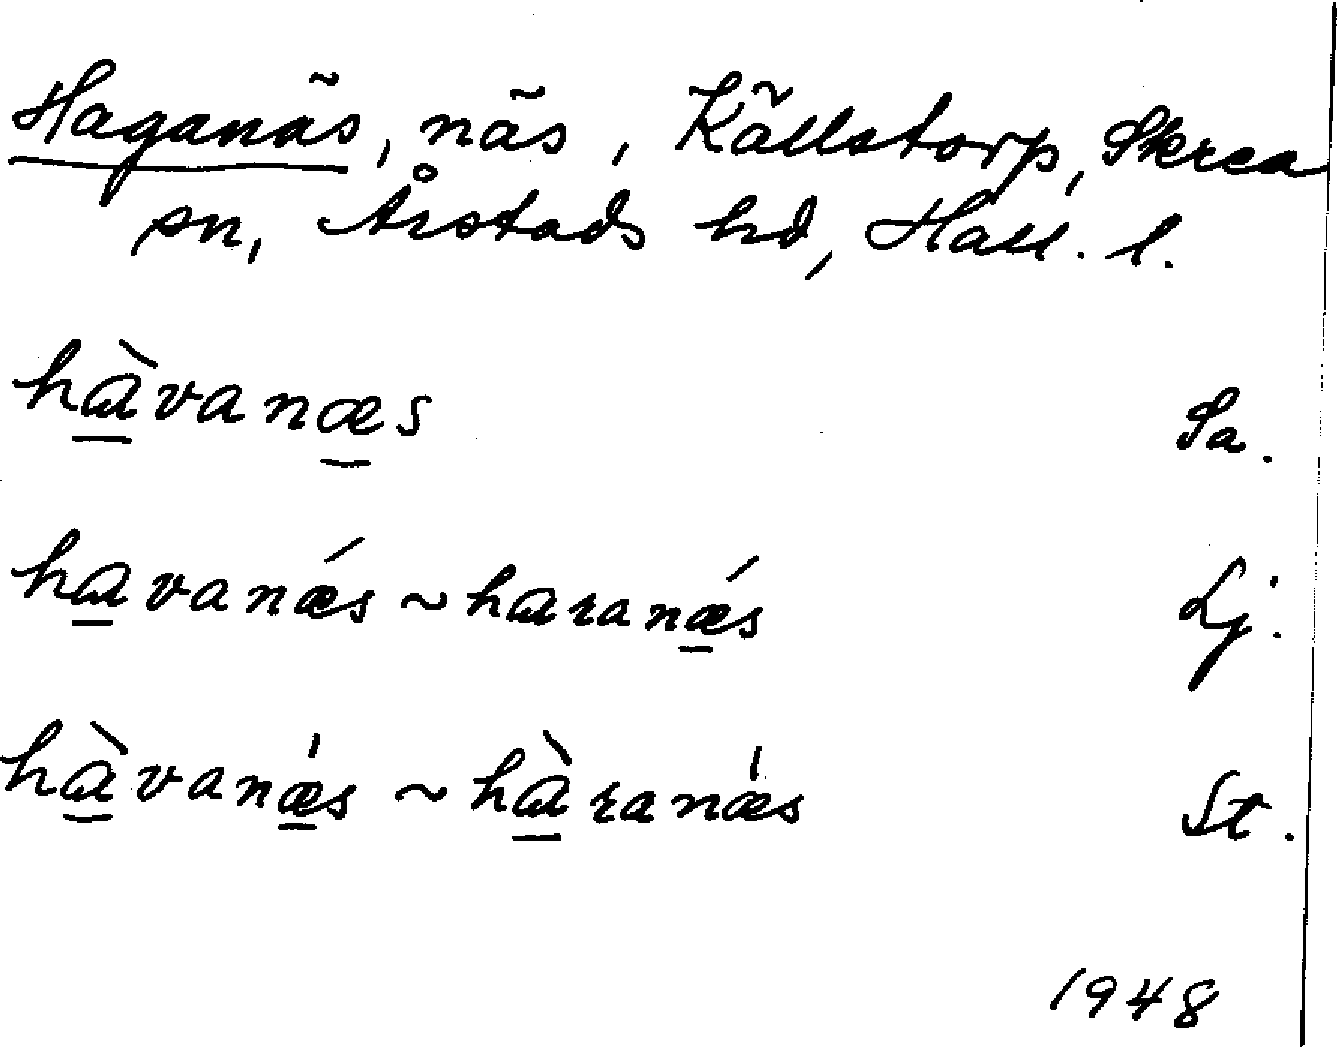 Haganäs, näs, Källstorp, Skrea
sn, Årstads hd, Hall. l.
hɑ̠̀vanæ̠s Sa.
hɑ̠vanǽs ~ hɑranǽ̠s Lj.
hɑ̠̀vanǽ̠s ~ hɑ̠̀ranǽs St.
1948